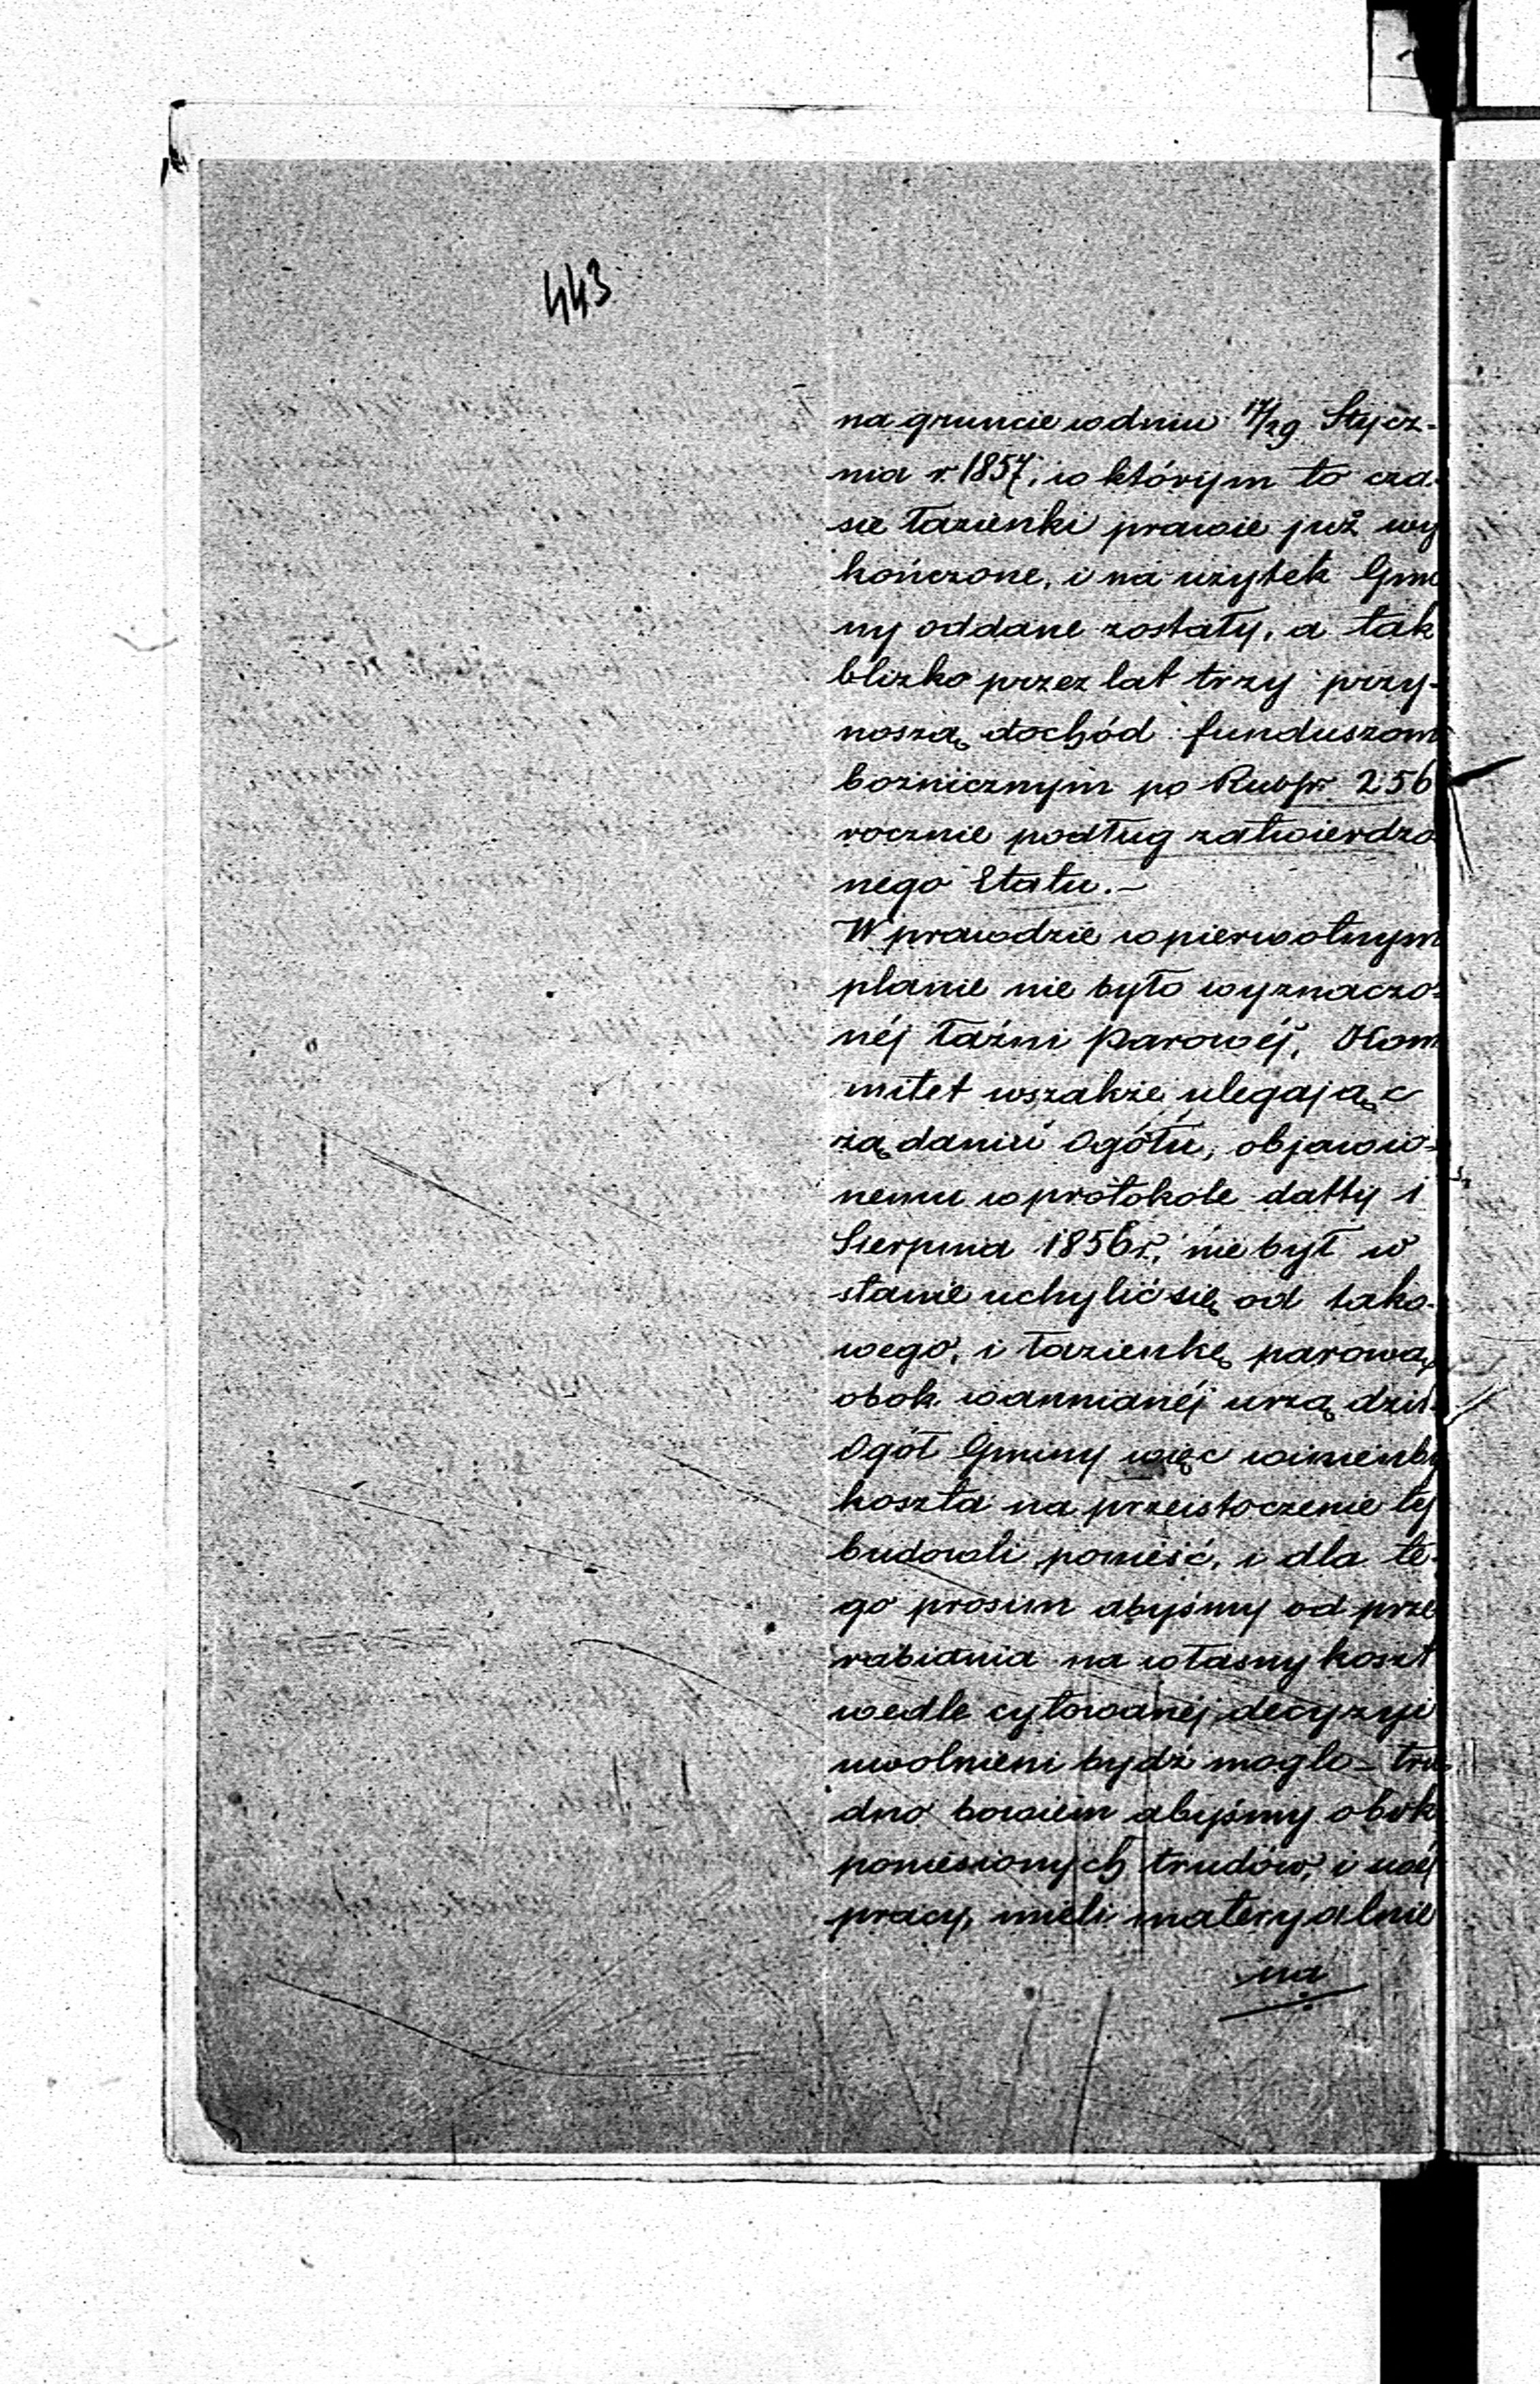 443
na gruncie w dniu 17/29 Stycz-
nia r. 1857, w którym to cza-
sie łazienki prawie już wy
kończone, i na użytek Gmi
ny oddane zostały, a tak
blizko przez lat trzy przy-
noszą dochód funduszom
bożnicznym po Rubsr. 256
rocznie podług zatwierdzo
nego Etatu.-
W prawdzie w pierwotnym
planie nie było wyznaczo-
néj łaźni Parowéj, Kom
mitet wszakże ulegając
żądaniu Ogółu, objawio-
nemu w protokóle datty 1
Sierpnia 1856 r., nie był w
stanie uchylić się od tako-
wego, i łazienkę parową
obok wannianéj urządził.
Ogół Gminy więc winienby
koszta na przeistoczenie téj
budowli ponieść, i dla te-
go prosim abyśmy od prze
rabiania na własny koszt
wedle cytowanéj decyzyi
uwolnieni bydź mogli - tru
dno bowiem abyśmy obok
poniesionych trudów, i
pracy, mieli materyalnie
na